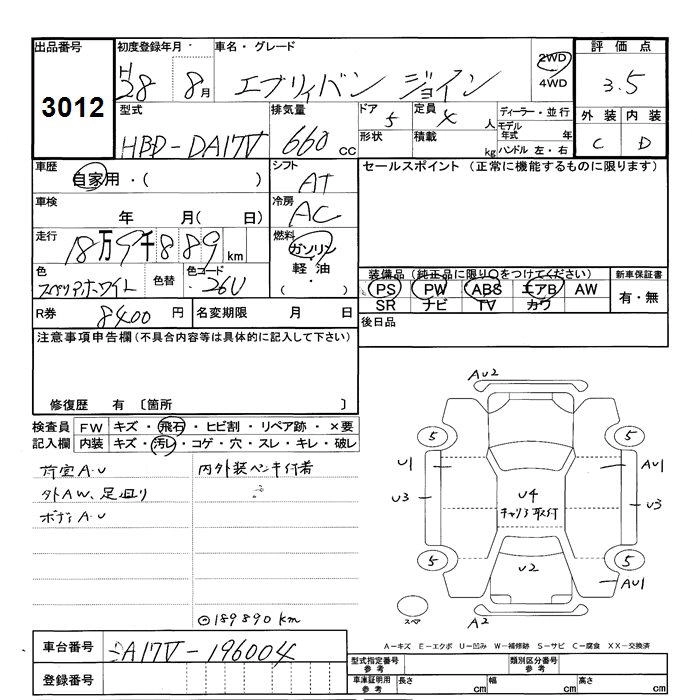 出品番号 初度登録年月 車名・グレード 評価点
3012 H28 8月 エブリィバン ジョイン 2WD 4WD 3.5
型式 排気量 ドア 定員 ディーラー・並行 外装 内装
HBD-DA17V 660 cc 5 4 人 モデル年式 年 C D
形状 積載 kg ハンドル 左・右
車歴 シフト セールスポイント (正常に機能するものに限ります)
自家用・( ) AT
車検 冷房
年 月( 日) AC
走行 燃料
18万9千889 km ガソリン
色 色替 色コード 軽油 装備品(純正品に限り○をつけてください) 新車保証書
スペリアホワイト 26U ( ・ ) PS PW ABS エアB AW 有・無
SR ナビ TV カワ
R券 8400 円 名変期限 月 日 後日品
注意事項申告欄(不具合内容等は具体的に記入して下さい)
修復歴 有 〔箇所 〕
検査員 FW キズ・飛石・ヒビ割・リペア跡・×要
記入欄 内装 キズ・汚レ・コゲ・穴・スレ・キレ・破レ
荷室A・U 内外装ペンキ付着
外AW、足回り
ボディA・U
◎189890km
AU2
5 5
U1 AU1
U3 U4 U3
キャリア取付
5 5
U2 AU1
スペ A2
A-キズ E-エクボ U-凹み W-補修跡 S-サビ C-腐食 XX-交換済
車台番号 DA17V-196004
型式指定番号 参考 類別区分番号 参考
登録番号 車庫証明用 参考 長さ cm 幅 cm 高さ cm